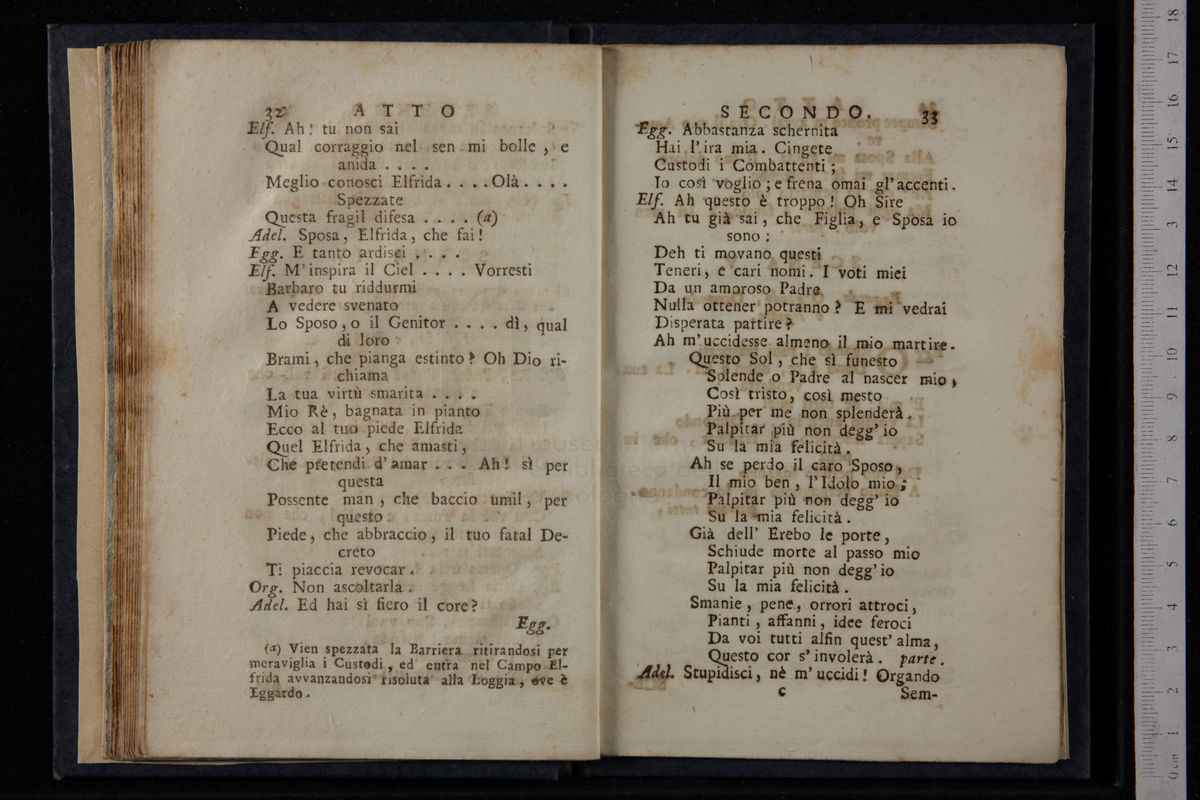 32 ATTO
Elf. Ah! tu non sai
Qual corraggio nel sen mi bolle, e
anida . . . .
Meglio conosci Elfrida. . . .Olà. . . .
Spezzate
Questa fragil difesa . . . . (a)
Adel. Sposa, Elfrida, che fai!
Egg. E tanto ardisci . . . .
Elf. M'inspira il Ciel . . . . Vorresti
Barbaro tu riddurmi
A vedere svenato
Lo Sposo, o il Genitor . . . . dì, qual
di loro
Brami, che pianga estinto? Oh Dio ri-
chiama
La tua virtù smarita . . . .
Mio Rè, bagnata in pianto
Ecco al tuo piede Elfrida
Quel Elfrida, che amasti,
Che pretendi d'amar . . . Ah! sì per
questa
Possente man, che baccio umil, per
questo
Piede, che abbraccio, il tuo fatal De-
creto
Ti piaccia revocar.
Org. Non ascoltarla.
Adel. Ed hai sì fiero il core?
Egg.
(a) Vien spezzata la Barriera ritirandosi per
meraviglia i Custodi, ed entra nel Campo El-
frida avvanzandosi risoluta alla Loggia, ove è
Eggardo.
SECONDO. 33
Egg. Abbastanza schernita
Hai l'ira mia. Cingete
Custodi i Combattenti;
Io così voglio; e frena omai gl'accenti.
Elf. Ah questo è troppo! Oh Sire
Ah tu già sai, che Figlia, e Sposa io
sono:
Deh ti movano questi
Teneri, e cari nomi. I voti miei
Da un amoroso Padre
Nulla ottener potranno? E mi vedrai
Disperata partire?
Ah m'uccidesse almeno il mio martire.
Questo Sol, che sì funesto
Solende o Padre al nascer mio,
Così tristo, così mesto
Più per me non splenderà.
Palpitar più non degg'io
Su la mia felicità.
Ah se perdo il caro Sposo,
Il mio ben, l'Idolo mio;
Palpitar più non degg'io
Su la mia felicità.
Già dell' Erebo le porte,
Schiude morte al passo mio
Palpitar più non degg'io
Su la mia felicità.
Smanie, pene, orrori attroci,
Pianti, affanni, idee feroci
Da voi tutti alfin quest'alma,
Questo cor s'involerà. parte.
Adel. Stupidisci, nè m'uccidi! Orgando
C Sem-